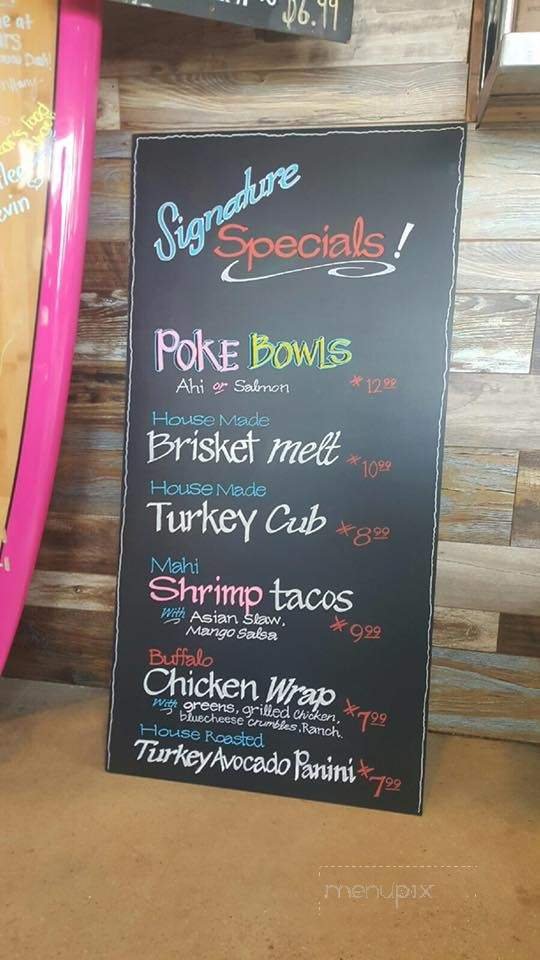 $6.99
e at
Signature
Specials!
POKE BOWLS
Ahi or Salmon *12.99
House Made
Brisket melt *10.99
House Made
Turkey Cub *8.99
Mahi
Shrimp tacos
With Asian Slaw,
Mango Salsa *9.99
Buffalo
Chicken Wrap
With greens, grilled chicken, *7.99
bluecheese crumbles, Ranch.
House Roasted
Turkey Avocado Panini *7.99
menupix